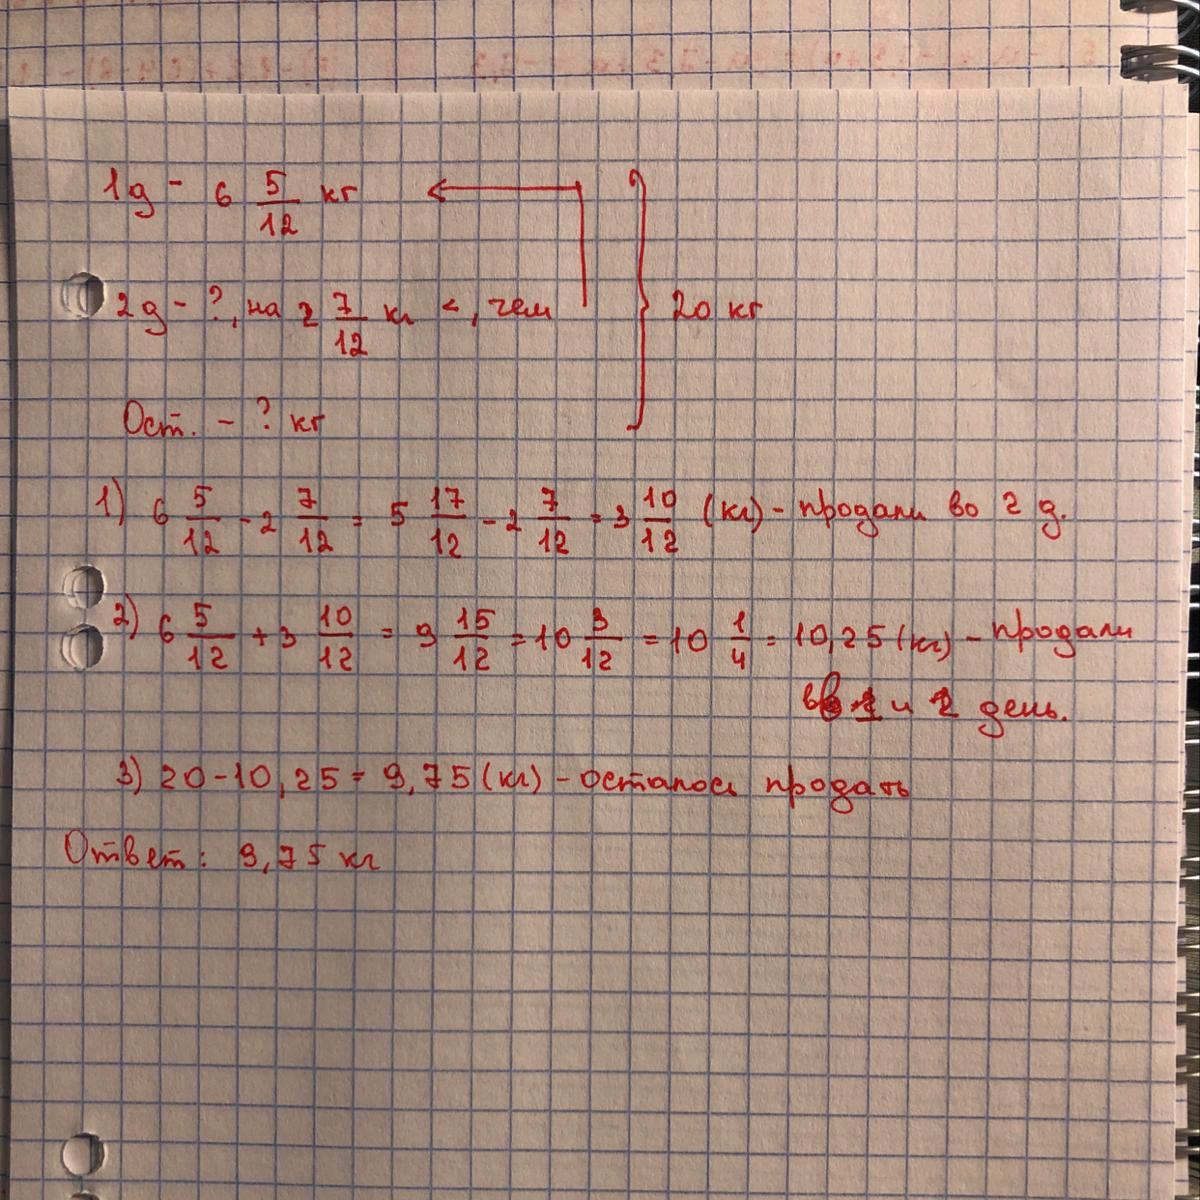 1д - 6 5/12 кг
2д - ?, на 2 7/12 кг <, чем
20 кг
Ост. - ? кг
1) 6 5/12 - 2 7/12 = 5 17/12 - 2 7/12 = 3 10/12 (кг) - продали во 2 д.
2) 6 5/12 + 3 10/12 = 9 15/12 = 10 3/12 = 10 1/4 = 10,25 (кг) - продали
1 и 2 день.
3) 20 - 10,25 = 9,75 (кг) - осталось продать
Ответ: 9,75 кг